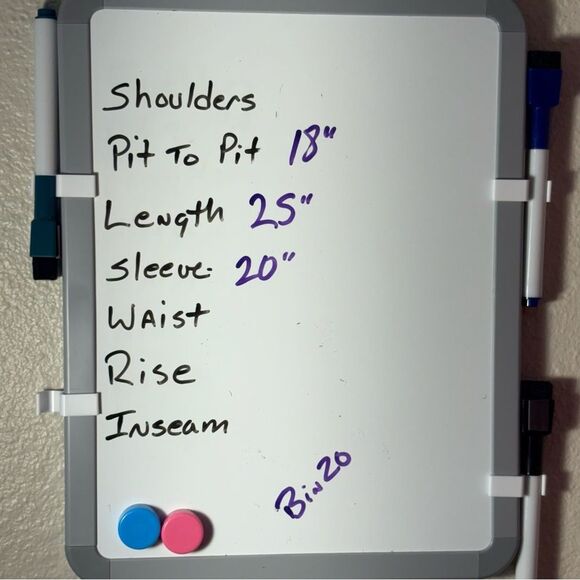 Shoulders
Pit To Pit 18"
Length 25"
Sleeve 20"
Waist
Rise
Inseam
Bin 20